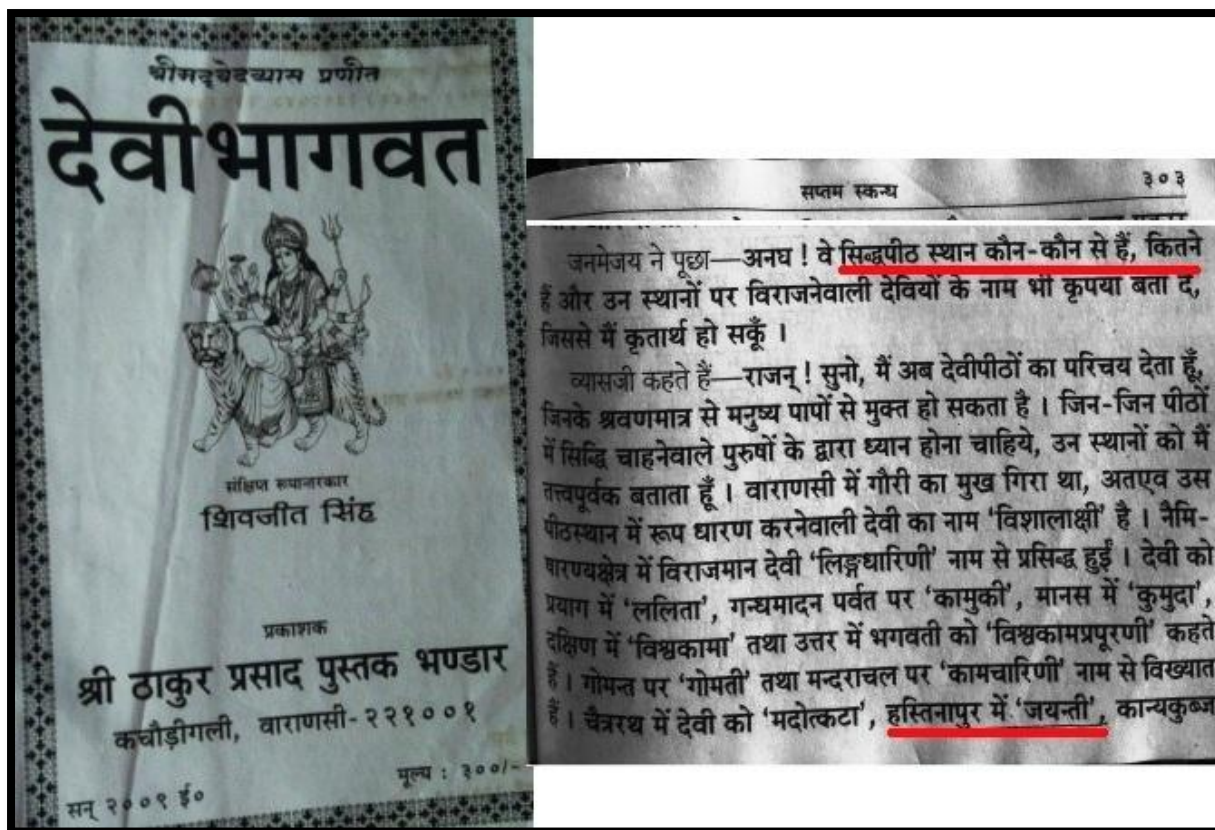 श्रीमद्वेदव्यास प्रणीत
देवीभागवत
संक्षिप्त रूपान्तरकार
शिवजीत सिंह
प्रकाशक
श्री ठाकुर प्रसाद पुस्तक भण्डार
कचौड़ीगली, वाराणसी-२२१००१
मूल्य : ३००/-
सन् २००९ ई०
सप्तम स्कन्ध ३०३
जनमेजय ने पूछा—अनघ ! वे सिद्धपीठ स्थान कौन-कौन से हैं, कितने
हैं और उन स्थानों पर विराजनेवाली देवियों के नाम भी कृपया बता दें,
जिससे मैं कृतार्थ हो सकूँ ।
व्यासजी कहते हैं—राजन् ! सुनो, मैं अब देवीपीठों का परिचय देता हूँ,
जिनके श्रवणमात्र से मनुष्य पापों से मुक्त हो सकता है । जिन-जिन पीठों
में सिद्धि चाहनेवाले पुरुषों के द्वारा ध्यान होना चाहिये, उन स्थानों को मैं
तत्त्वपूर्वक बताता हूँ । वाराणसी में गौरी का मुख गिरा था, अतएव उस
पीठस्थान में रूप धारण करनेवाली देवी का नाम 'विशालाक्षी' है । नैमि-
षारण्यक्षेत्र में विराजमान देवी 'लिङ्गधारिणी' नाम से प्रसिद्ध हुईं । देवी को
प्रयाग में 'ललिता', गन्धमादन पर्वत पर 'कामुकी', मानस में 'कुमुदा',
दक्षिण में 'विश्वकामा' तथा उत्तर में भगवती को 'विश्वकामप्रपूरणी' कहते
हैं । गोमन्त पर 'गोमती' तथा मन्दराचल पर 'कामचारिणी' नाम से विख्यात
हैं । चैत्ररथ में देवी को 'मदोत्कटा', हस्तिनापुर में 'जयन्ती', कान्यकुब्ज